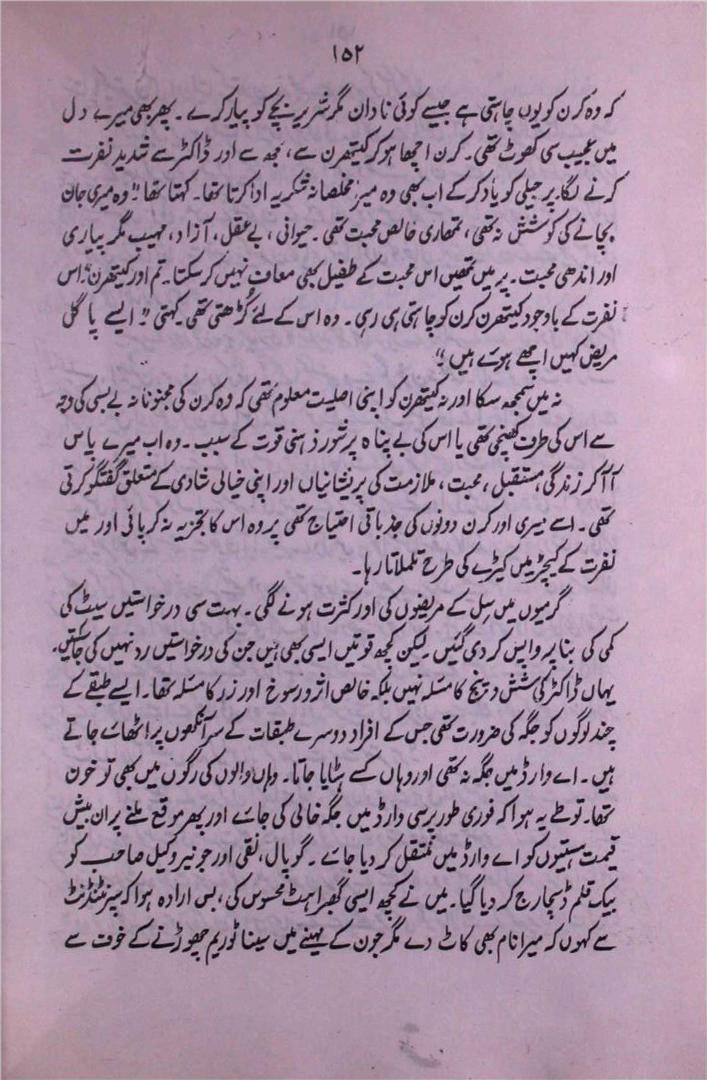 ۱۵۲
کہ وہ کرن کو یوں چاہتی ہے جیسے کوئی نادان مگر شریر بچے کو پیار کرے۔ پھر بھی میرے دل
میں عجیب سی کھوٹ تھی۔ کرن اچھا ہو کر کیتھرن سے، مجھ سے اور ڈاکٹر سے شدید نفرت
کرنے لگا۔ پر جیلی کو یاد کر کے اب بھی وہ میرا مخلصانہ شکریہ ادا کرتا تھا۔ کہتا تھا۔" وہ میری جان
بچانے کی کوشش نہ تھی، تمھاری خالص محبت تھی۔ حیوانی، بے عقل، آزاد، مہیب مگر پیاری
اور اندھی محبت۔ پر میں تمھیں اس محبت کے طفیل بھی معاف نہیں کر سکتا۔ تم اور کیتھرن"۔ اس
نفرت کے باوجود کیتھرن کرن کو چاہتی ہی رہی۔ وہ اس کے لئے کڑھتی تھی۔ کہتی "ایسے پاگل
مریض کہیں اچھے ہوئے ہیں؟"
نہ میں سمجھ سکا اور نہ کیتھرن کو اپنی اصلیت معلوم تھی کہ وہ کرن کی مجنونانہ بے بسی کی وجہ
سے اس کی طرف کھنچی تھی یا اس کی بے پناہ پر شور ذہنی قوت کے سبب۔ وہ اب میرے پاس
آ آ کر زندگی، مستقبل، محبت، ملازمت کی پریشانیاں اور اپنی خیالی شادی کے متعلق گفتگو کرتی
تھی۔ اسے میری اور کرن دونوں کی جذباتی احتیاج تھی پر وہ اس کا تجزیہ نہ کر پائی اور میں
نفرت کے کیچڑ میں کیڑے کی طرح تلملاتا رہا۔
گرمیوں میں سِل کے مریضوں کی اور کثرت ہونے لگی۔ بہت سی درخواستیں سیٹ کی
کمی کی بنا پر واپس کر دی گئیں۔ لیکن کچھ قوتیں ایسی بھی ہیں جن کی درخواستیں رد نہیں کی جا سکتیں۔
یہاں ڈاکٹر کی شش و پنج کا مسئلہ نہیں بلکہ خالص اثر و رسوخ اور زر کا مسئلہ تھا۔ ایسے طبقے کے
چند لوگوں کو جگہ کی ضرورت تھی جس کے افراد دوسرے طبقات کے سر آنکھوں پر اٹھائے جاتے
ہیں۔ اے وارڈ میں جگہ نہ تھی اور وہاں کسے ہٹایا جاتا۔ وہاں والوں کی رگوں میں بھی تو خون
تھا۔ تو طے یہ ہوا کہ فوری طور پر سی وارڈ میں جگہ خالی کی جائے اور پھر موقع ملنے پر ان بیش
قیمت ہستیوں کو اے وارڈ میں منتقل کر دیا جائے۔ گوپال، نقی اور جونیر وکیل صاحب کو
بیک قلم ڈسچارج کر دیا گیا۔ میں نے کچھ ایسی گھبراہٹ محسوس کی، بس ارادہ ہوا کہ سپرنٹنڈنٹ
سے کہوں کہ میرا نام بھی کاٹ دے مگر جون کے مہینے میں سینا ٹوریم چھوڑنے کے خوف سے